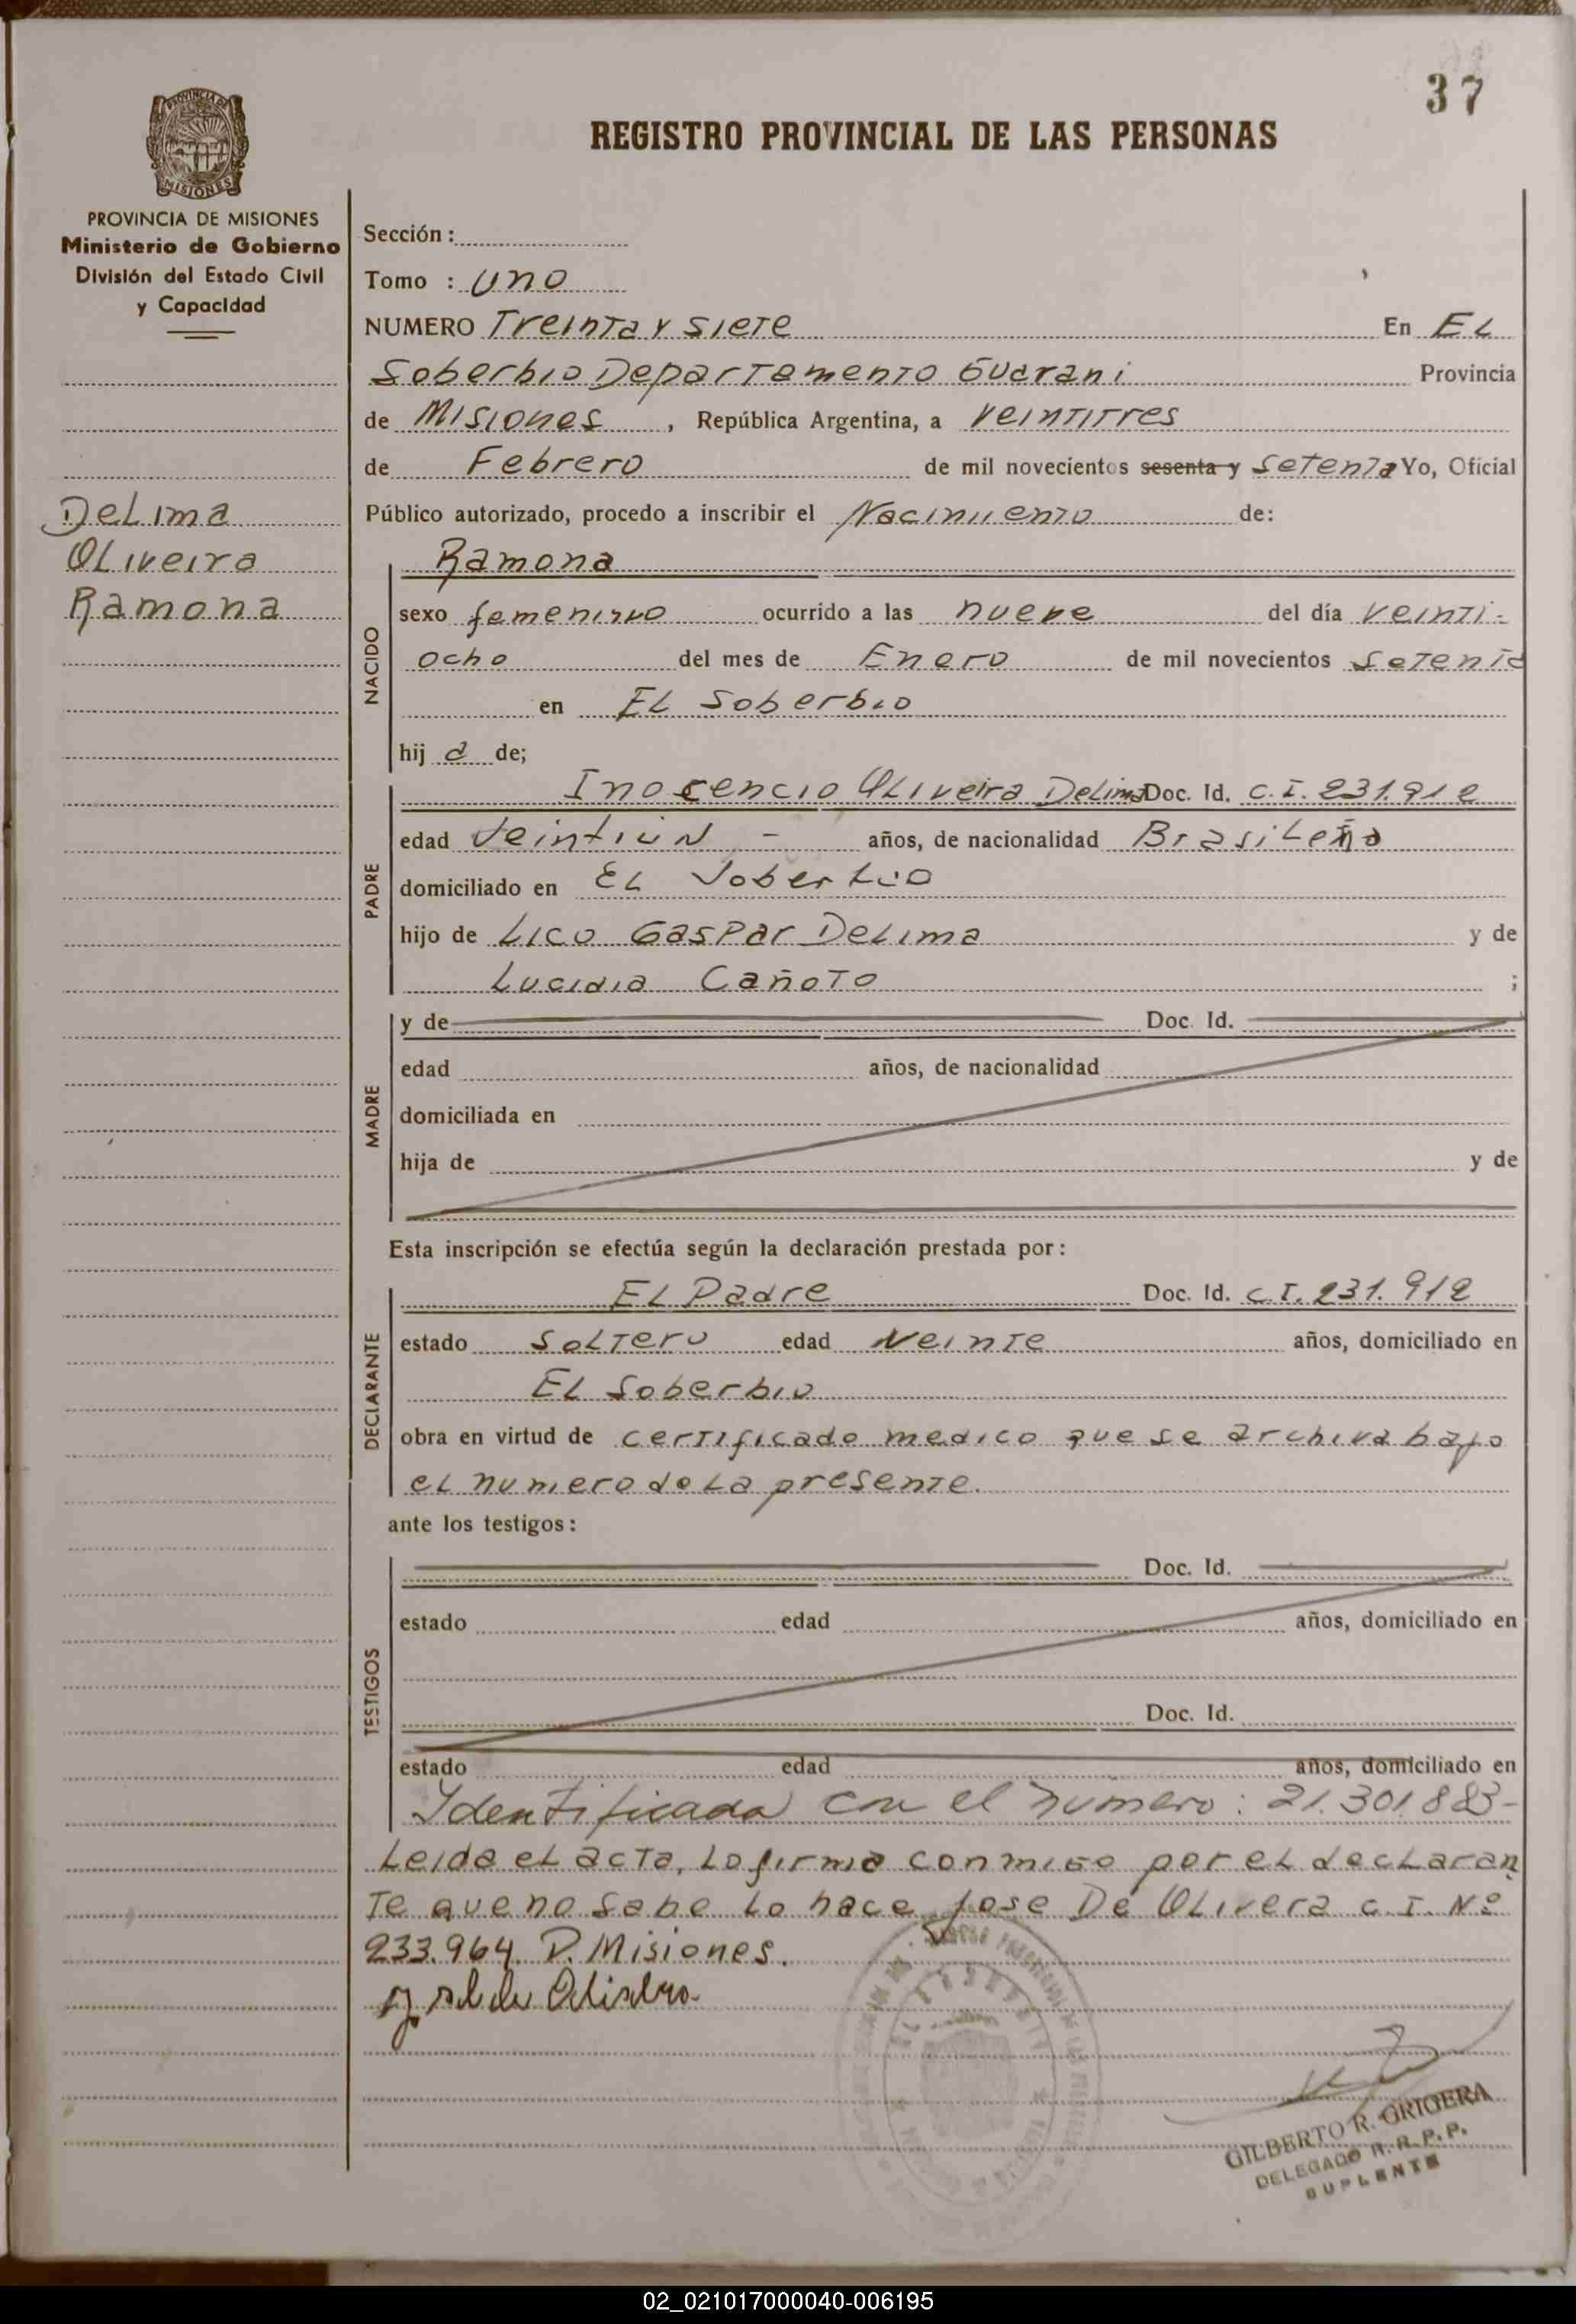 37
REGISTRO PROVINCIAL DE LAS PERSONAS
PROVINCIA DE MISIONES
Ministerio de Gobierno
División del Estado Civil
y Capacidad
Sección :
Tomo : Uno
NUMERO Treinta y siete En EL
Soberbio Departamento Guarani Provincia
de Misiones , República Argentina, a Veintitres
de Febrero de mil novecientos sesenta y Setenta Yo, Oficial
Público autorizado, procedo a inscribir el Nacimiento de:
DeLima
OLiveira
Ramona
NACIDO
Ramona
sexo femenino ocurrido a las nueve del día Veinti-
ocho del mes de Enero de mil novecientos Setenta
en EL Soberbio
hij a de;
PADRE
Inocencio OLiveira Delima Doc. Id. C.I. 231.912
edad Veintiun - años, de nacionalidad BrasiLeño
domiciliado en EL Soberbio
hijo de Lico Gaspar DeLima y de
Lucidia Cañoto ;
MADRE
y de Doc. Id.
edad años, de nacionalidad
domiciliada en
hija de y de
Esta inscripción se efectúa según la declaración prestada por:
DECLARANTE
EL Padre Doc. Id. C.I. 231.912
estado SoLtero edad Veinte años, domiciliado en
EL Soberbio
obra en virtud de certificado medico que se archiva bajo
eL numero de La presente.
ante los testigos:
TESTIGOS
Doc. Id.
estado edad años, domiciliado en
Doc. Id.
estado edad años, domiciliado en
Identificada con el número: 21.301.883-
Leida eL acta, La firma conmigo por eL decLaran
te que no sabe Lo hace Jose De OLivera C.I. Nº
233.964. P. Misiones.
GILBERTO R. GRIGERA
DELEGADO R. R. P. P.
SUPLENTE
02_021017000040-006195